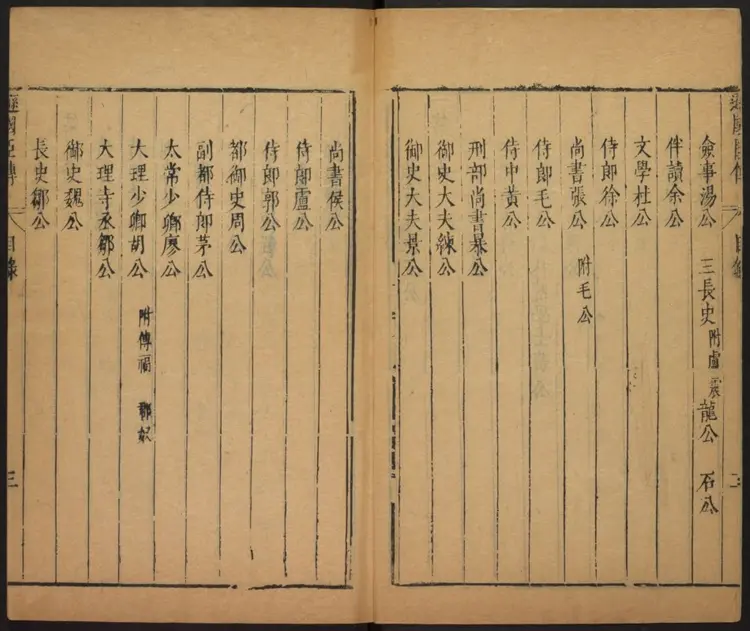 遜國臣傳 目錄 二
僉事湯公 三長史 附盧震 龍公 石公
伴讀余公
文學杜公
侍郎徐公
尚書張公 附毛公
侍郎毛公
侍中黃公
刑部尚書暴公
御史大夫練公
御史大夫景公
尚書侯公
侍郎盧公
侍郎郭公
都御史周公
副都侍郎茅公
太常少卿廖公
大理少卿胡公 附傅福 郡奴
大理寺丞鄒公
御史魏公
長史鄒公
遜國臣傳 目錄 三